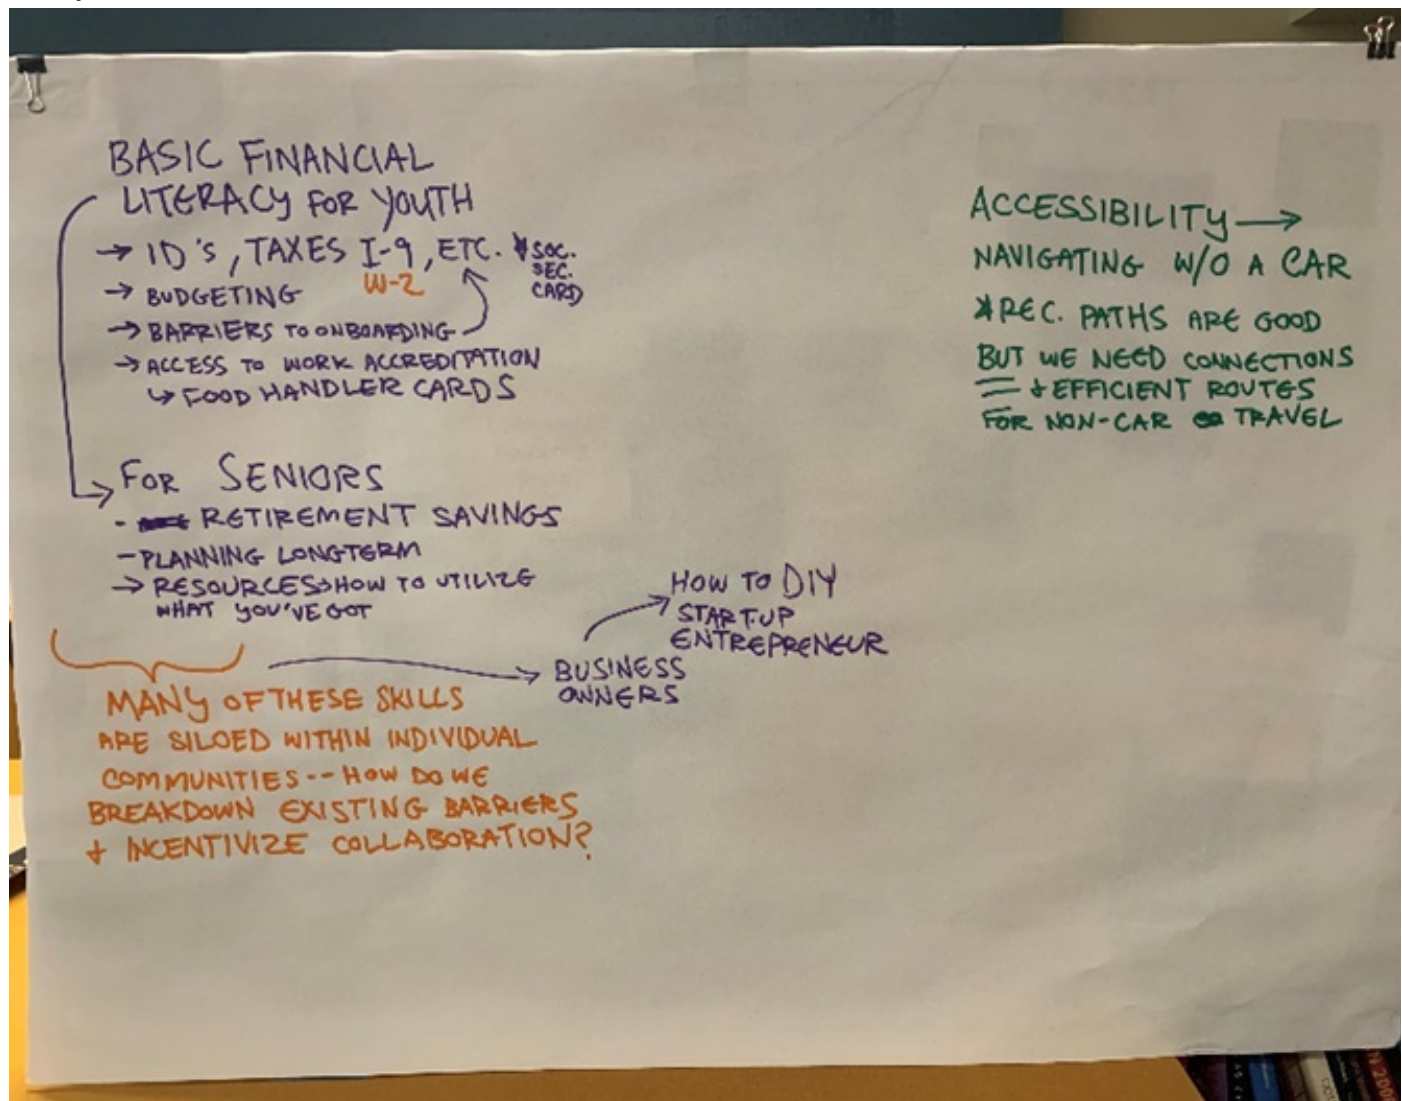 BASIC FINANCIAL
LITERACY FOR YOUTH
→ ID'S, TAXES I-9, ETC. * SOC.
SEC.
CARD
W-2
→ BUDGETING
→ BARRIERS TO ONBOARDING
→ ACCESS TO WORK ACCREDITATION
↳ FOOD HANDLER CARDS
FOR SENIORS
- RETIREMENT SAVINGS
- PLANNING LONGTERM
→ RESOURCES → HOW TO UTILIZE
WHAT YOU'VE GOT
MANY OF THESE SKILLS
ARE SILOED WITHIN INDIVIDUAL
COMMUNITIES -- HOW DO WE
BREAKDOWN EXISTING BARRIERS
+ INCENTIVIZE COLLABORATION?
BUSINESS
OWNERS
HOW TO DIY
START-UP
ENTREPRENEUR
ACCESSIBILITY →
NAVIGATING W/O A CAR
* REC. PATHS ARE GOOD
BUT WE NEED CONNECTIONS
+ EFFICIENT ROUTES
FOR NON-CAR TRAVEL